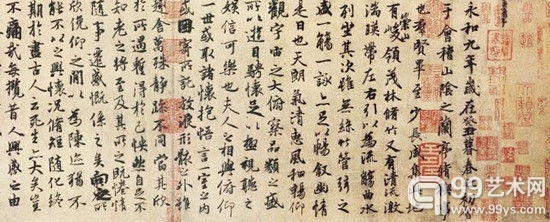 永和九年歲在癸丑暮春
于會稽山陰之蘭亭脩
也羣賢畢至少長咸集此
有崇山峻領茂林脩竹又有清流激
湍暎帶左右引以為流觴曲水
列坐其次雖無絲竹管弦之
盛一觴一詠亦足以暢叙幽情
是日也天朗氣清惠風和暢仰
觀宇宙之大俯察品類之盛
所以遊目騁懷足以極視聽之
娛信可樂也夫人之相與俯仰
一世或取諸懷抱悟言一室之內
或因寄所託放浪形骸之外雖
趣舍萬殊靜躁不同當其欣
於所遇暫得於己怏然自足不
知老之將至及其所之既惓情
隨事遷感慨係之矣向之所
欣俛仰之閒以為陳迹猶不
能不以之興懷況脩短隨化終
期於盡古人云死生亦大矣豈
不痛哉每攬昔人興感之由
99艺术网
www.99ys.com